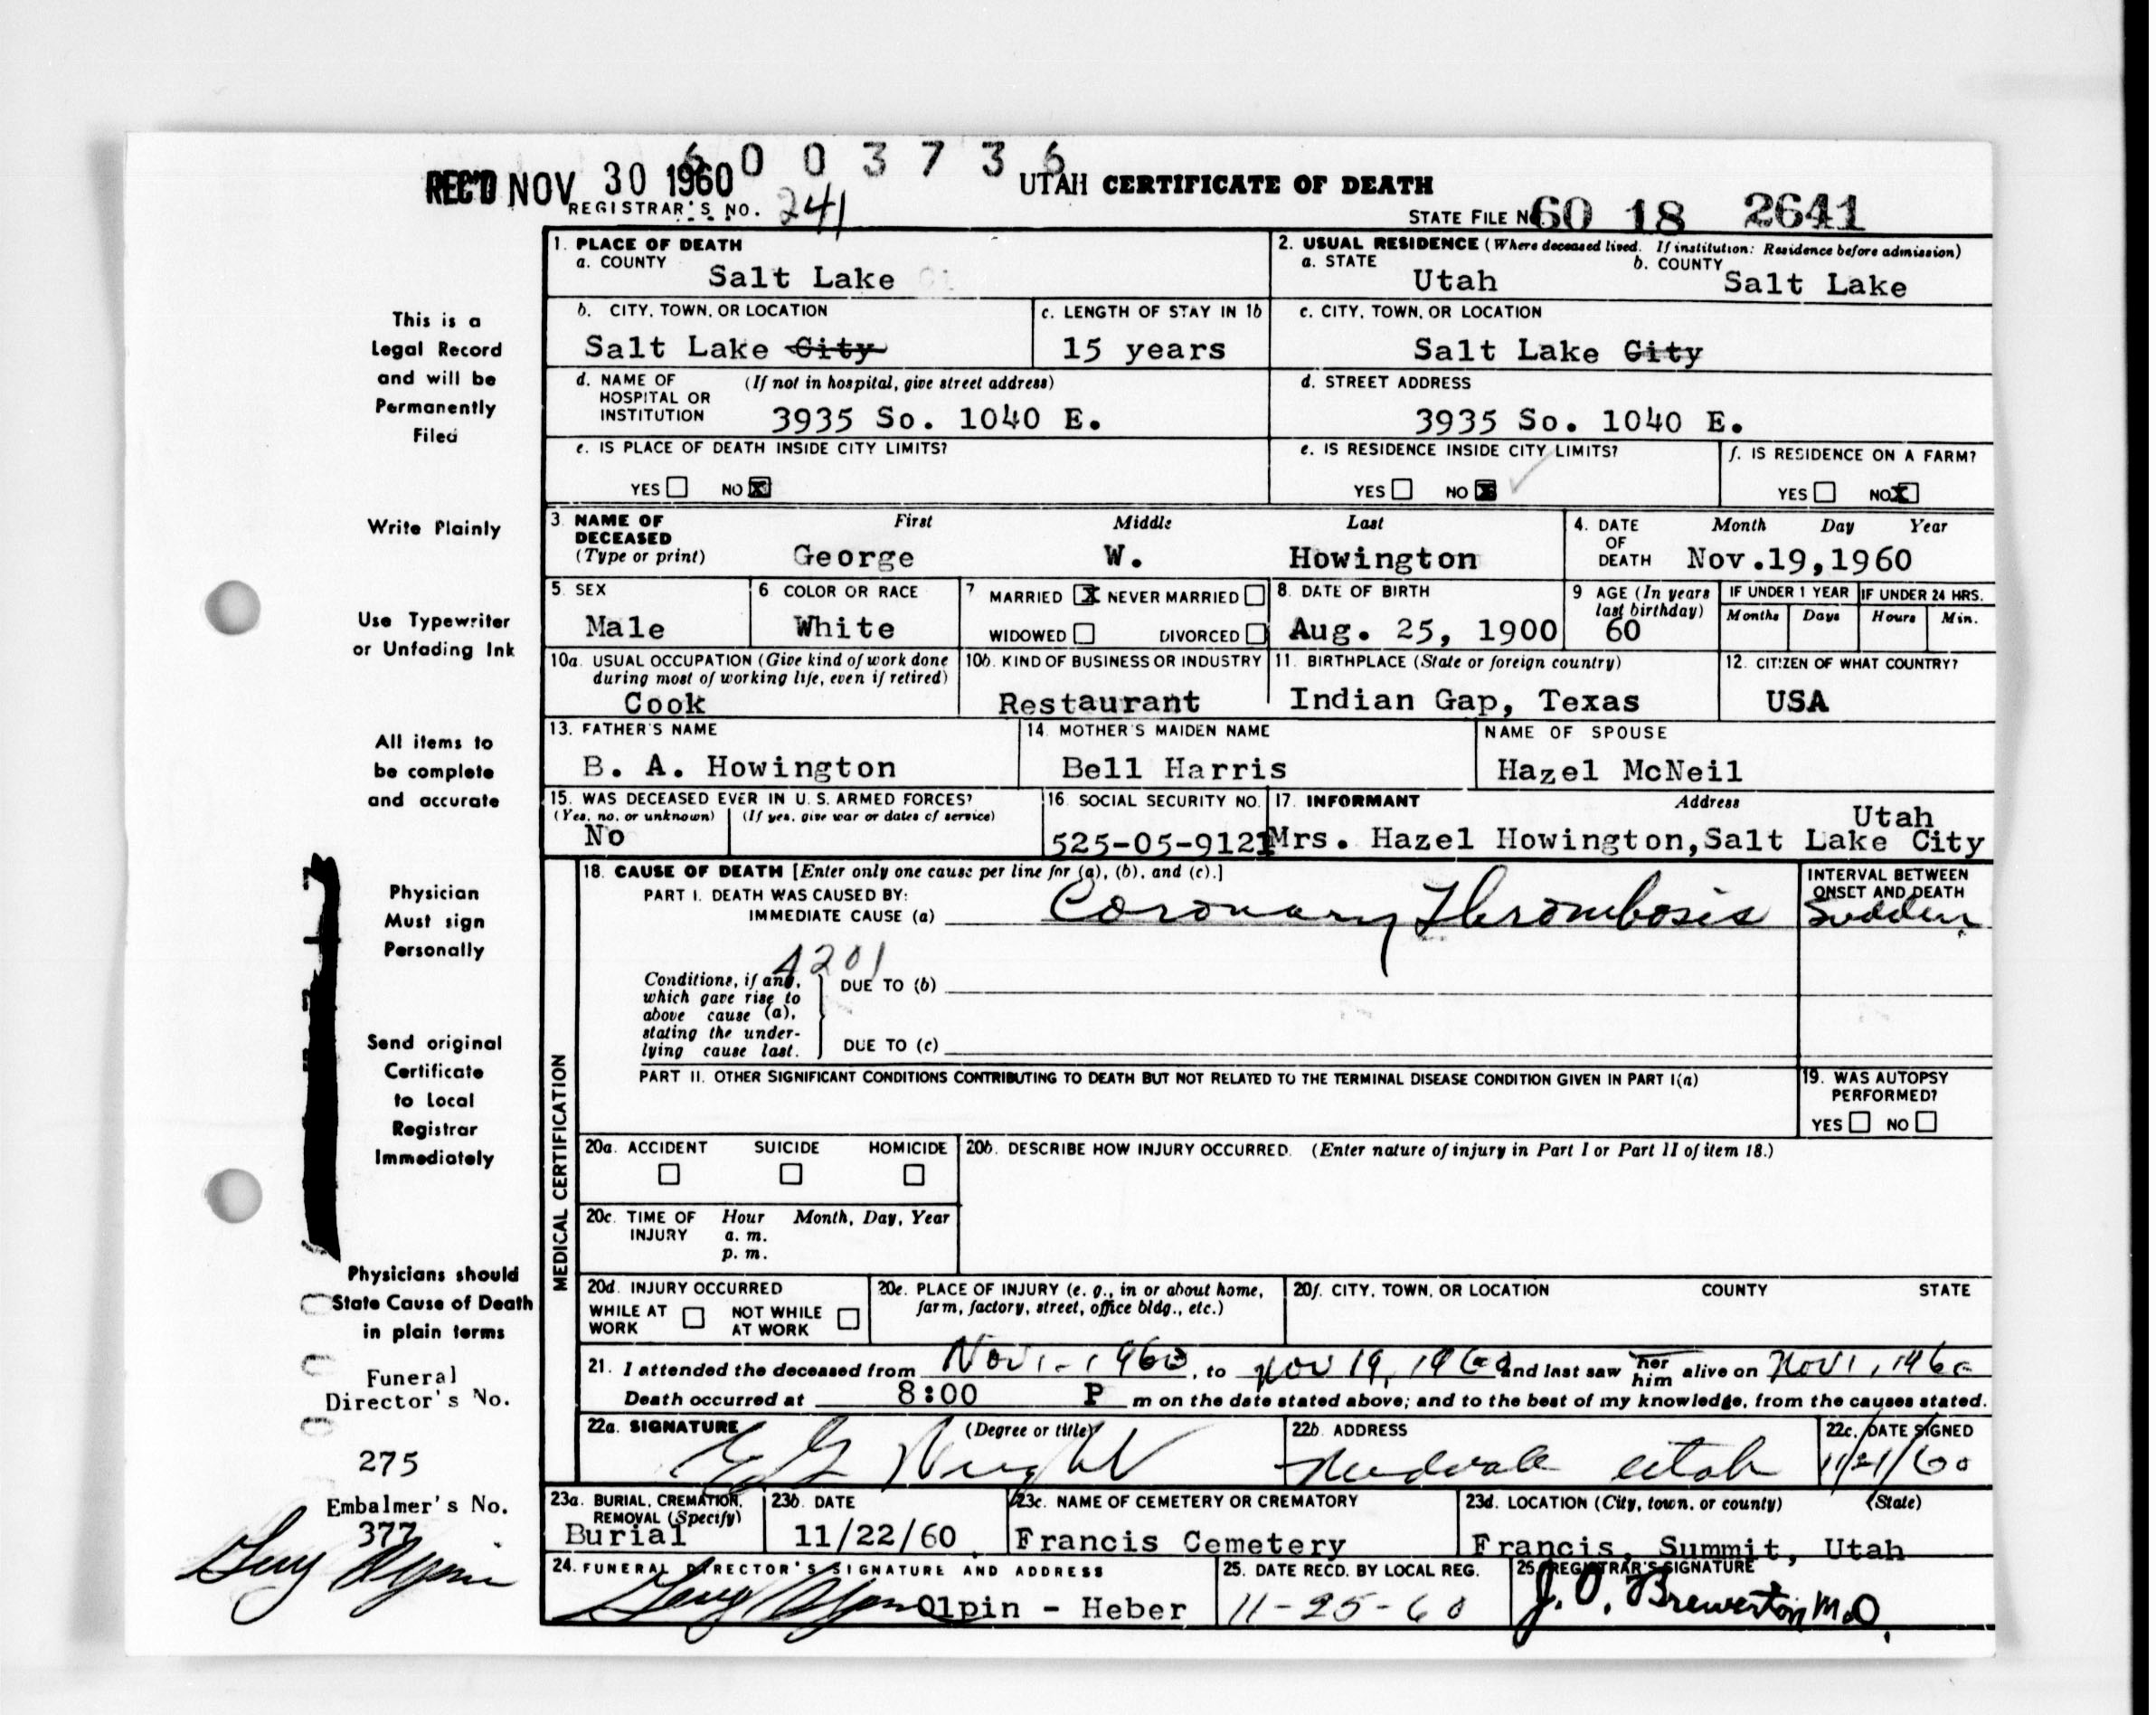 6 0 0 3 7 3 6
REC'D NOV 30 1960
UTAH CERTIFICATE OF DEATH
REGISTRAR'S NO. 241
STATE FILE No 60 18 2641
This is a
Legal Record
and will be
Permanently
Filed
Write Plainly
Use Typewriter
or Unfading Ink
All items to
be complete
and accurate
Physician
Must sign
Personally
Send original
Certificate
to Local
Registrar
Immediately
Physicians should
State Cause of Death
in plain terms
Funeral
Director's No.
275
Embalmer's No.
377
1. PLACE OF DEATH
a. COUNTY
Salt Lake
2. USUAL RESIDENCE (Where deceased lived. If institution: Residence before admission)
a. STATE Utah b. COUNTY Salt Lake
b. CITY, TOWN, OR LOCATION
Salt Lake City
c. LENGTH OF STAY IN 1b
15 years
c. CITY, TOWN, OR LOCATION
Salt Lake City
d. NAME OF HOSPITAL OR INSTITUTION (If not in hospital, give street address)
3935 So. 1040 E.
d. STREET ADDRESS
3935 So. 1040 E.
e. IS PLACE OF DEATH INSIDE CITY LIMITS?
YES NO X
e. IS RESIDENCE INSIDE CITY LIMITS?
YES NO X
f. IS RESIDENCE ON A FARM?
YES NO X
3. NAME OF DECEASED (Type or print)
First Middle Last
George W. Howington
4. DATE OF DEATH Month Day Year
Nov.19,1960
5. SEX
Male
6 COLOR OR RACE
White
7 MARRIED X NEVER MARRIED
WIDOWED DIVORCED
8. DATE OF BIRTH
Aug. 25, 1900
9 AGE (In years last birthday)
60
IF UNDER 1 YEAR IF UNDER 24 HRS.
Months Days Hours Min.
10a. USUAL OCCUPATION (Give kind of work done during most of working life, even if retired)
Cook
10b. KIND OF BUSINESS OR INDUSTRY
Restaurant
11. BIRTHPLACE (State or foreign country)
Indian Gap, Texas
12. CITIZEN OF WHAT COUNTRY?
USA
13. FATHER'S NAME
B. A. Howington
14. MOTHER'S MAIDEN NAME
Bell Harris
NAME OF SPOUSE
Hazel McNeil
15. WAS DECEASED EVER IN U. S. ARMED FORCES?
(Yes, no, or unknown) (If yes, give war or dates of service)
No
16. SOCIAL SECURITY NO.
525-05-9121
17. INFORMANT Address
Mrs. Hazel Howington, Salt Lake City Utah
MEDICAL CERTIFICATION
18. CAUSE OF DEATH [Enter only one cause per line for (a), (b), and (c).]
PART I. DEATH WAS CAUSED BY:
IMMEDIATE CAUSE (a) Coronary Thrombosis
INTERVAL BETWEEN ONSET AND DEATH
Sudden
4201
Conditions, if any, which gave rise to above cause (a), stating the underlying cause last.
DUE TO (b)
DUE TO (c)
PART II. OTHER SIGNIFICANT CONDITIONS CONTRIBUTING TO DEATH BUT NOT RELATED TO THE TERMINAL DISEASE CONDITION GIVEN IN PART I(a)
19. WAS AUTOPSY PERFORMED?
YES NO
20a. ACCIDENT SUICIDE HOMICIDE
20b. DESCRIBE HOW INJURY OCCURRED. (Enter nature of injury in Part I or Part II of item 18.)
20c. TIME OF INJURY Hour Month, Day, Year
a. m.
p. m.
20d. INJURY OCCURRED
WHILE AT WORK NOT WHILE AT WORK
20e. PLACE OF INJURY (e. g., in or about home, farm, factory, street, office bldg., etc.)
20f. CITY, TOWN, OR LOCATION COUNTY STATE
21. I attended the deceased from Nov 1 - 1960, to Nov 19, 1960 and last saw her him alive on Nov 1, 1960
Death occurred at 8:00 P m on the date stated above; and to the best of my knowledge, from the causes stated.
22a. SIGNATURE (Degree or title)
22b. ADDRESS
Midvale Utah
22c. DATE SIGNED
11/21/60
23a. BURIAL, CREMATION, REMOVAL (Specify)
Burial
23b. DATE
11/22/60
23c. NAME OF CEMETERY OR CREMATORY
Francis Cemetery
23d. LOCATION (City, town, or county) (State)
Francis, Summit, Utah
24. FUNERAL DIRECTOR'S SIGNATURE AND ADDRESS
Olpin - Heber
25. DATE RECD. BY LOCAL REG.
11-25-60
25. REGISTRAR'S SIGNATURE
J. O. Brewerton M.D.